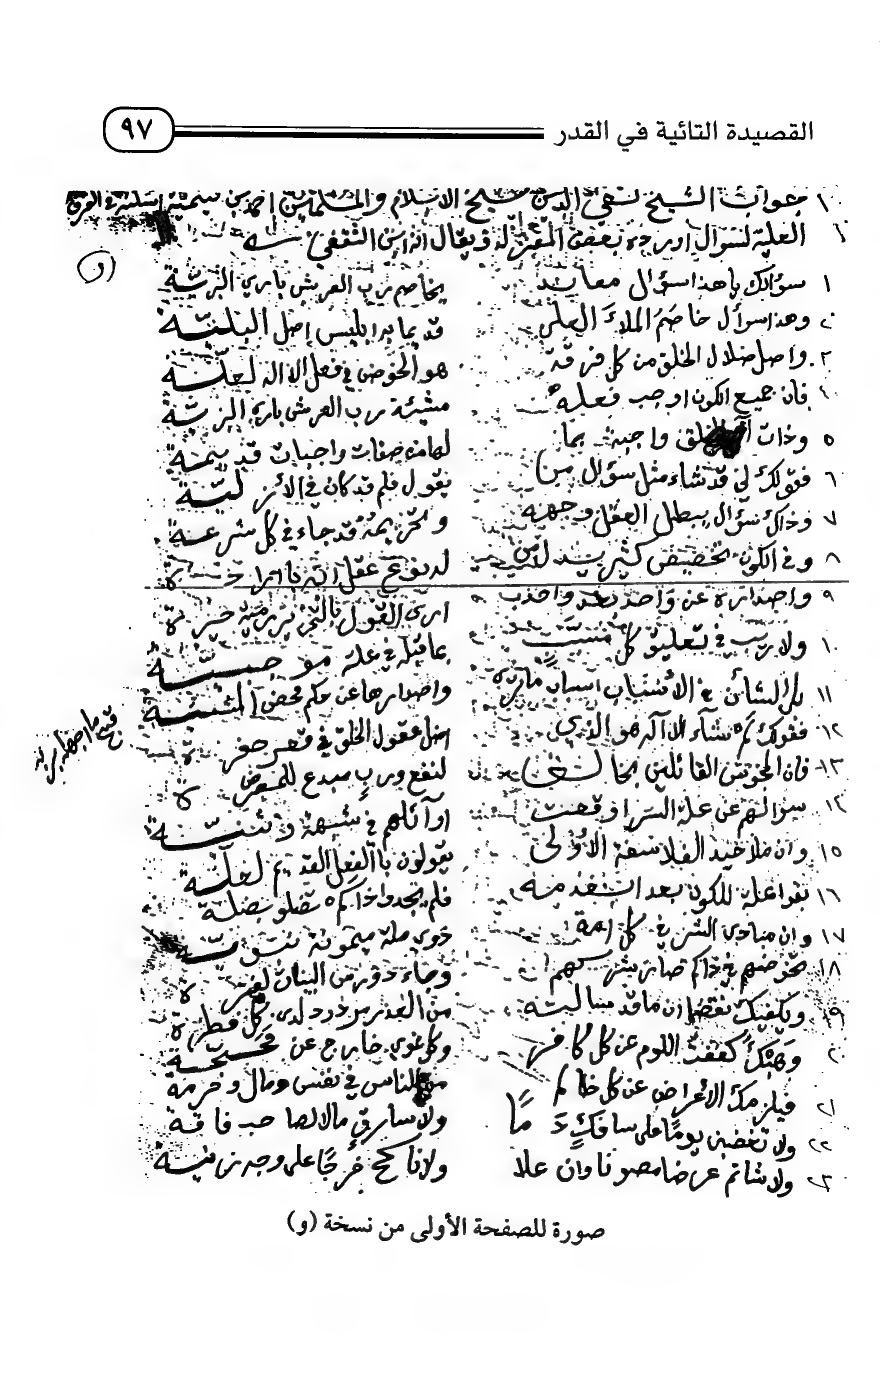 القصيدة التائية في القدر
٩٧
جواب الشيخ تقي الدين شيخ الاسلام والمسلمين احمد بن تيمية
العلية لسؤال اورده بعض المعتزلة ويقال انه ابن الثقفي
(و)
١ سؤالك يا هذا سؤال معاند يخاصم رب العرش باري البرية
وهذا سؤال خاصم الملاء العلى قديما به ابليس اصل البلية
واصل ضلال الخلق من كل فرقة هو الخوض في فعل الاله لعلة
فان جميع الكون اوجب فعله مشيئة رب العرش باري البرية
٥ وذات الخلق واجبة بما لها من صفات واجبات قديمة
٦ فقولك لم قد شاء مثل سؤال من يقول فلم قد كان في الازلية
٧ وذاك سؤال يبطل العقل وجهه وتحريمه قد جاء في كل شرعة
٨ وفي الكون تخصيص كثير يدل من له نوع عقل انه بارادة
٩ واصداره عن واحد بعد واحد ارى القول بالتجويز رمية حيرة
١٠ ولا ريب في تعليق كل مسبب بما قبله في علة موجبية
١١ بل الشأن في الأسباب اسباب ما ترى واصدارها عن حكم محض المشيئة
١٢ فقولك لم شاء الاله هو الذي اضل عقول الخلق في قعر حفرة
١٣ فان المجوس القائلين بخالق لنفع ورب مبدع للمضرة
سؤالهم عن علة السر اوقعت اوائلهم في شبهة
١٥ وان ملاحيد الفلاسفة الأولى يقولون بالفعل القديم لعلة
١٦ بغوا علة للكون بعد انعدامه فلم يجدوا ذاكم فضلو بضلة
١٧ وان مبادي الشر في كل امة ذوي ملة ميمونة
١٨ بخوضهم في ذاكم صار شركهم وجاء دروس البينات
١٩ ويكفيك نقضا ان ما قد سالته من العذر مردود لدى كل فطرة
وهبك كففت اللوم عن كل كافر وكل غوي خارج عن محجة
٢١ فيلزمك الأعراض عن كل ظالم الناس في نفس ومال وحرمة
ولا تغضبن يوما على سافك دما ولا سارق مالا لصاحب فاقة
ولا شاتم عرضا مصونا وان علا ولا ناكح فرجا على وجه زنية
صورة للصفحة الأولى من نسخة (و)